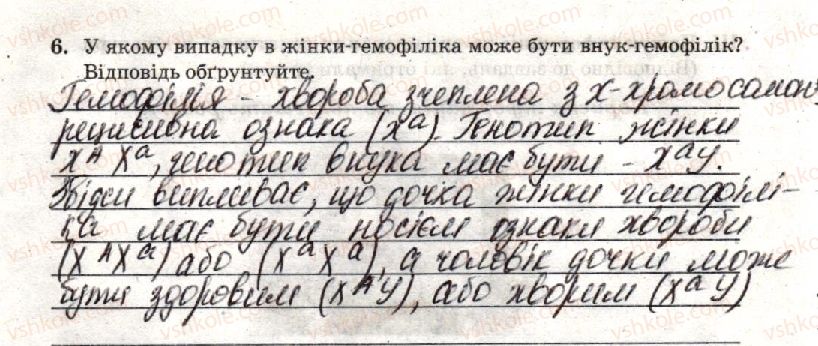 6. У якому випадку в жінки-гемофіліка може бути внук-гемофілік?
Відповідь обґрунтуйте.
Гемофілія – хвороба зчеплена з х-хромосомою,
рецисивна ознака (хᵃ). Генотип жінки
хᴬ хᵃ, генотип внука має бути – хᵃу.
Звідси випливає, що дочка жінки гемофілі-
ка має бути носієм ознаки хвороби
(хᴬхᵃ) або (хᵃхᵃ), а чоловік дочки може
бути здоровим (хᴬу), або хворим (хᵃу)